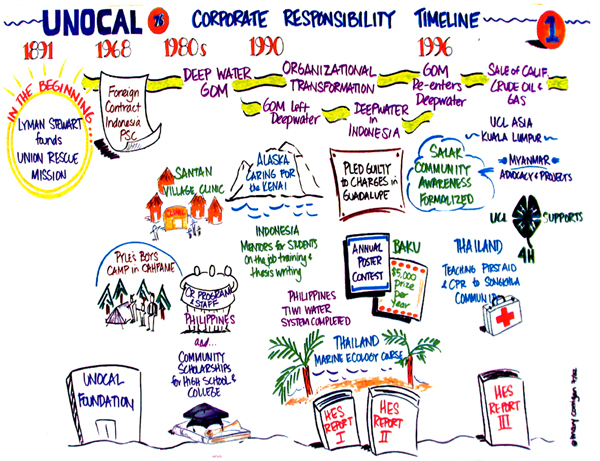 UNOCAL 76 CORPORATE RESPONSIBILITY TIMELINE 1
1891 1968 1980s 1990 1996
IN THE BEGINNING...
LYMAN STEWART
funds
UNION RESCUE
MISSION
Foreign
Contract
Indonesia
PSC
DEEP WATER
GOM
ORGANIZATIONAL
TRANSFORMATION
GOM
Re-enters
Deepwater
SALE OF CALIF.
CRUDE OIL &
GAS
GOM Left
Deepwater
DEEPWATER
in
INDONESIA
UCL ASIA
KUALA LUMPUR
MYANMAR
ADVOCACY & PROJECTS
SANTAN
VILLAGE CLINIC
CLINIC
ALASKA
CARING FOR
the KENAI
PLED GUILTY
to CHARGES in
GUADALUPE
SALAK
COMMUNITY
AWARENESS
FORMALIZED
UCL SUPPORTS
4H
INDONESIA
MENTORS for STUDENTS
ON the job training &
thesis writing
PYLE'S BOYS
CAMP in
CR PROGRAM
& STAFF
PHILIPPINES
and...
COMMUNITY
SCHOLARSHIPS
for HIGH SCHOOL &
COLLEGE
ANNUAL
POSTER
CONTEST
BAKU
$5,000
prize
per
Year
THAILAND
TEACHING FIRST AID
& CPR to SONGKHLA
COMMUNITY
PHILIPPINES
TIWI WATER
SYSTEM COMPLETED
THAILAND
MARINE ECOLOGY COURSE
UNOCAL
FOUNDATION
HES
REPORT
I
HES
REPORT
II
HES
REPORT
III